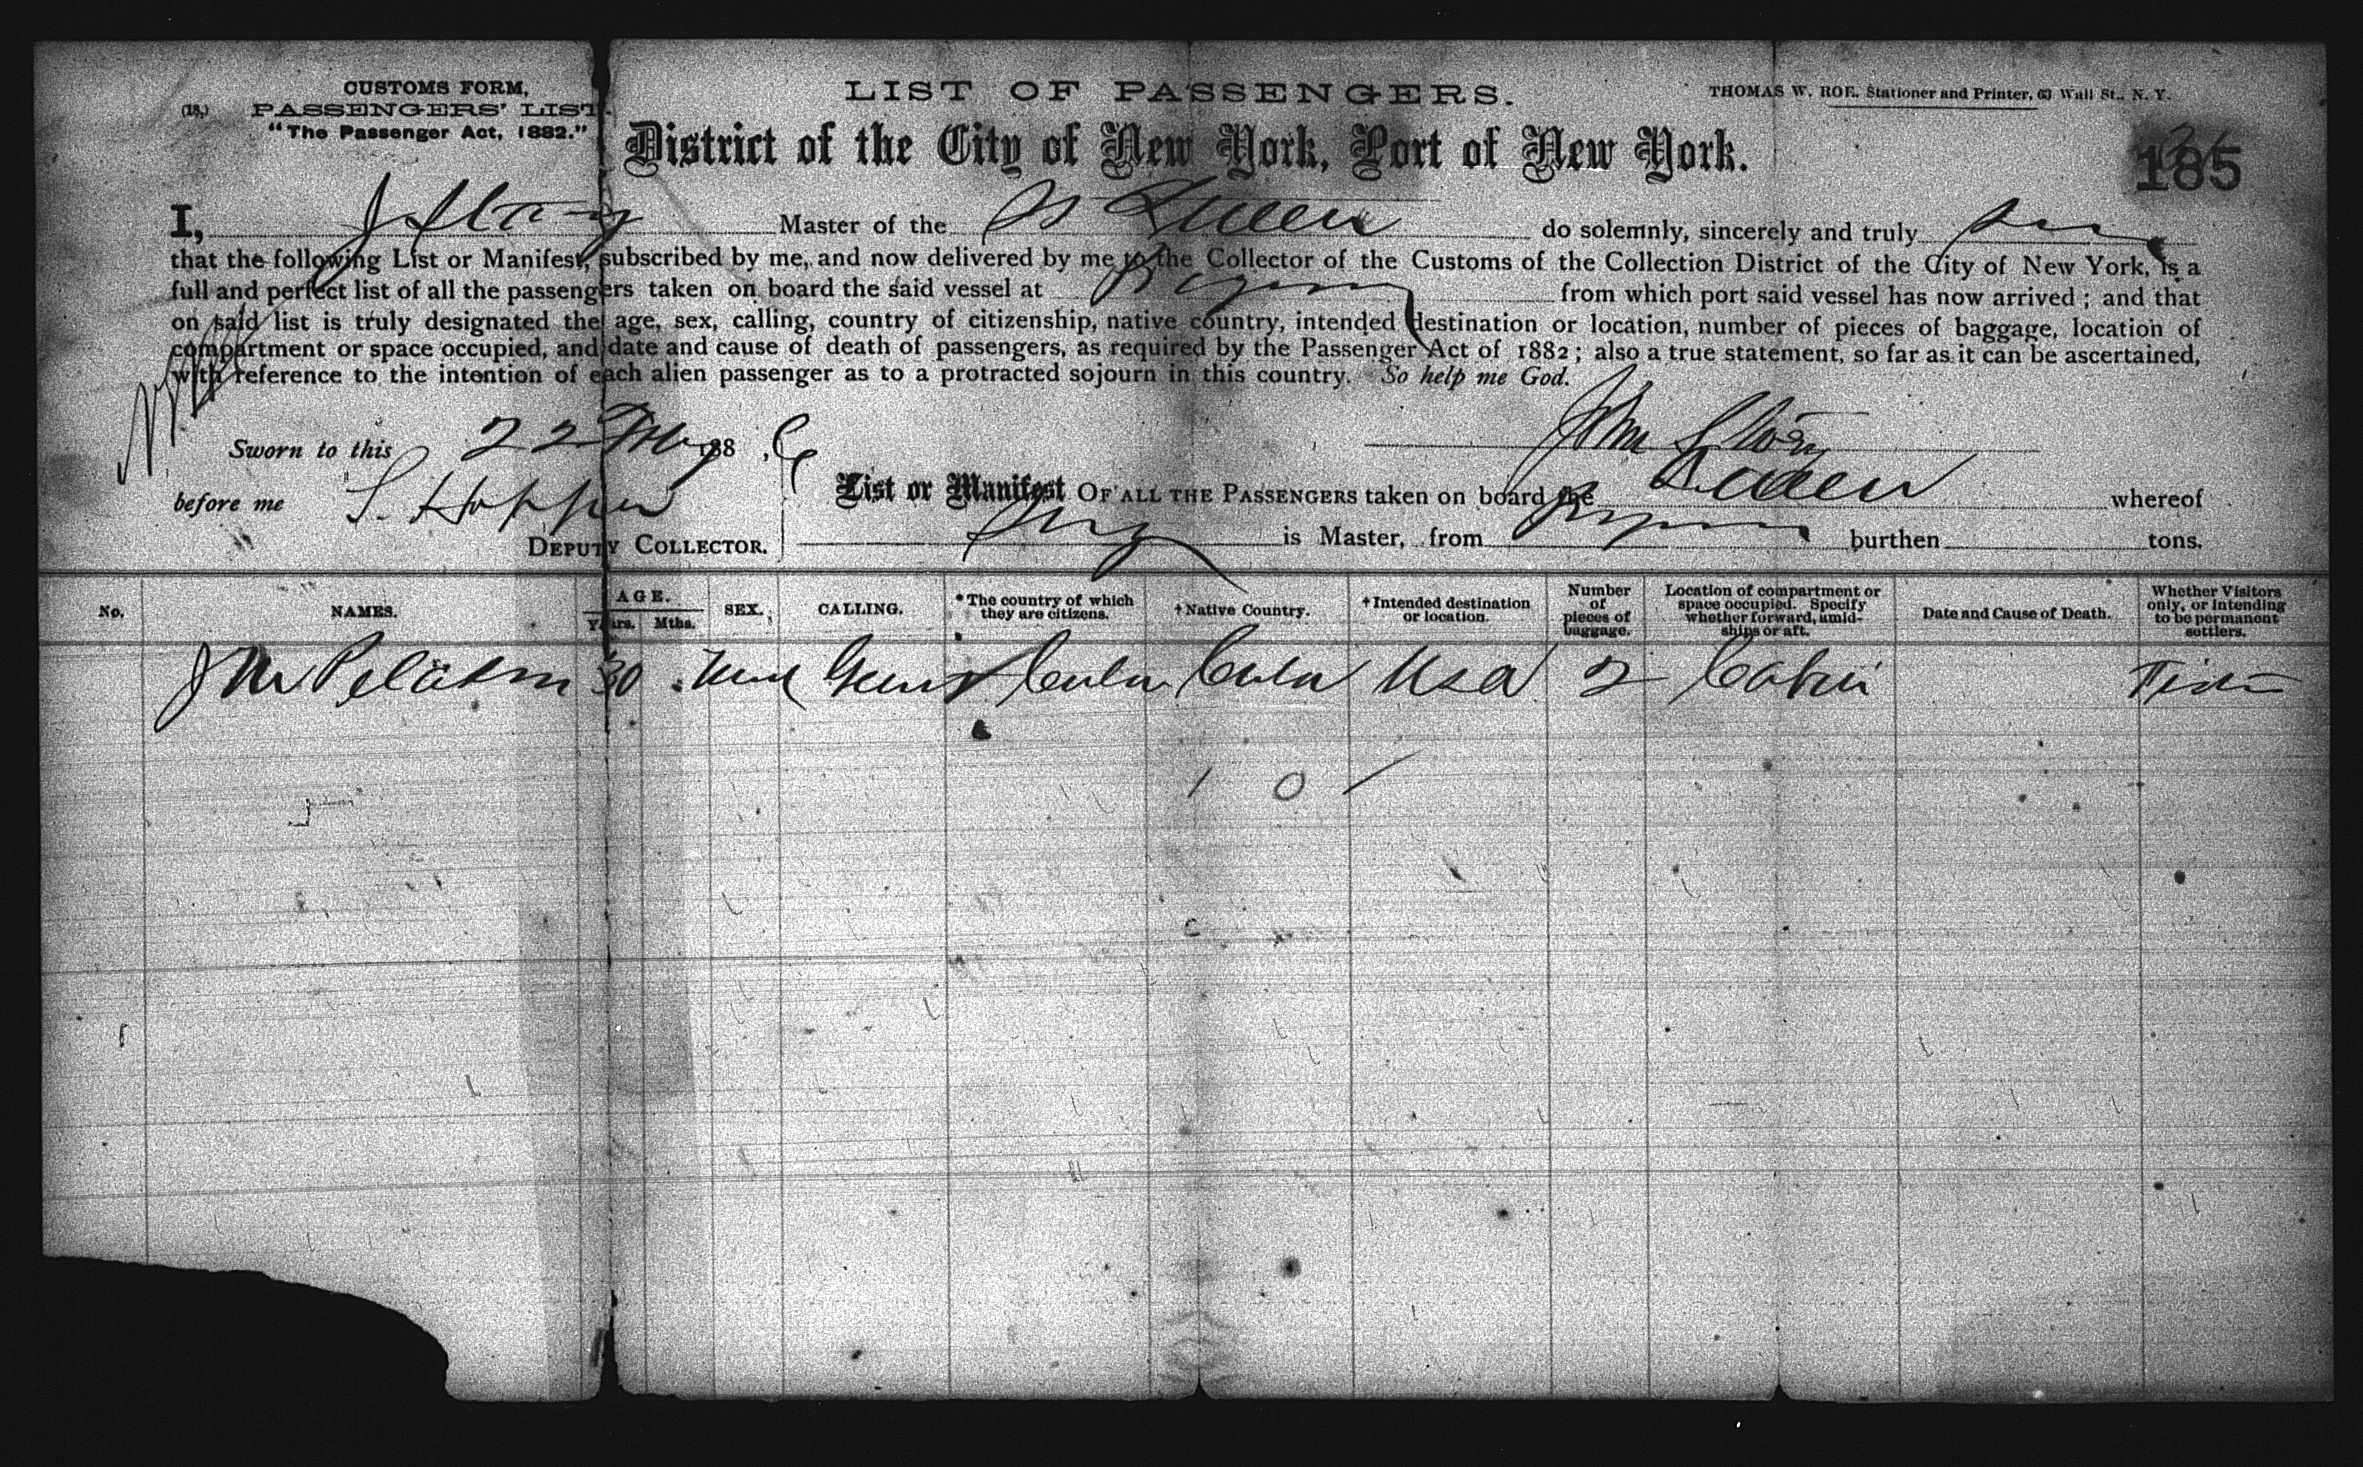 CUSTOMS FORM,
(18,) PASSENGERS' LIST.
"The Passenger Act, 1882."
LIST OF PASSENGERS.
THOMAS W. ROE, Stationer and Printer, 63 Wall St., N. Y.
District of the City of New York, Port of New York.
185
I, Master of the Queen do solemnly, sincerely and truly
that the following List or Manifest, subscribed by me, and now delivered by me to the Collector of the Customs of the Collection District of the City of New York, is a
full and perfect list of all the passengers taken on board the said vessel at from which port said vessel has now arrived; and that
on said list is truly designated the age, sex, calling, country of citizenship, native country, intended destination or location, number of pieces of baggage, location of
compartment or space occupied, and date and cause of death of passengers, as required by the Passenger Act of 1882; also a true statement, so far as it can be ascertained,
with reference to the intention of each alien passenger as to a protracted sojourn in this country. So help me God.
Sworn to this 22 188,6
John
before me S. Hopper
DEPUTY COLLECTOR.
List or Manifest OF ALL THE PASSENGERS taken on board the Queen whereof
is Master, from burthen tons.
No. NAMES. AGE. Years. Mths. SEX. CALLING. *The country of which they are citizens. †Native Country. †Intended destination or location. Number of pieces of baggage. Location of compartment or space occupied. Specify whether forward, amidships or aft. Date and Cause of Death. Whether Visitors only, or intending to be permanent settlers.
30 Cuba Cuba USA 2 Cabin
1 0